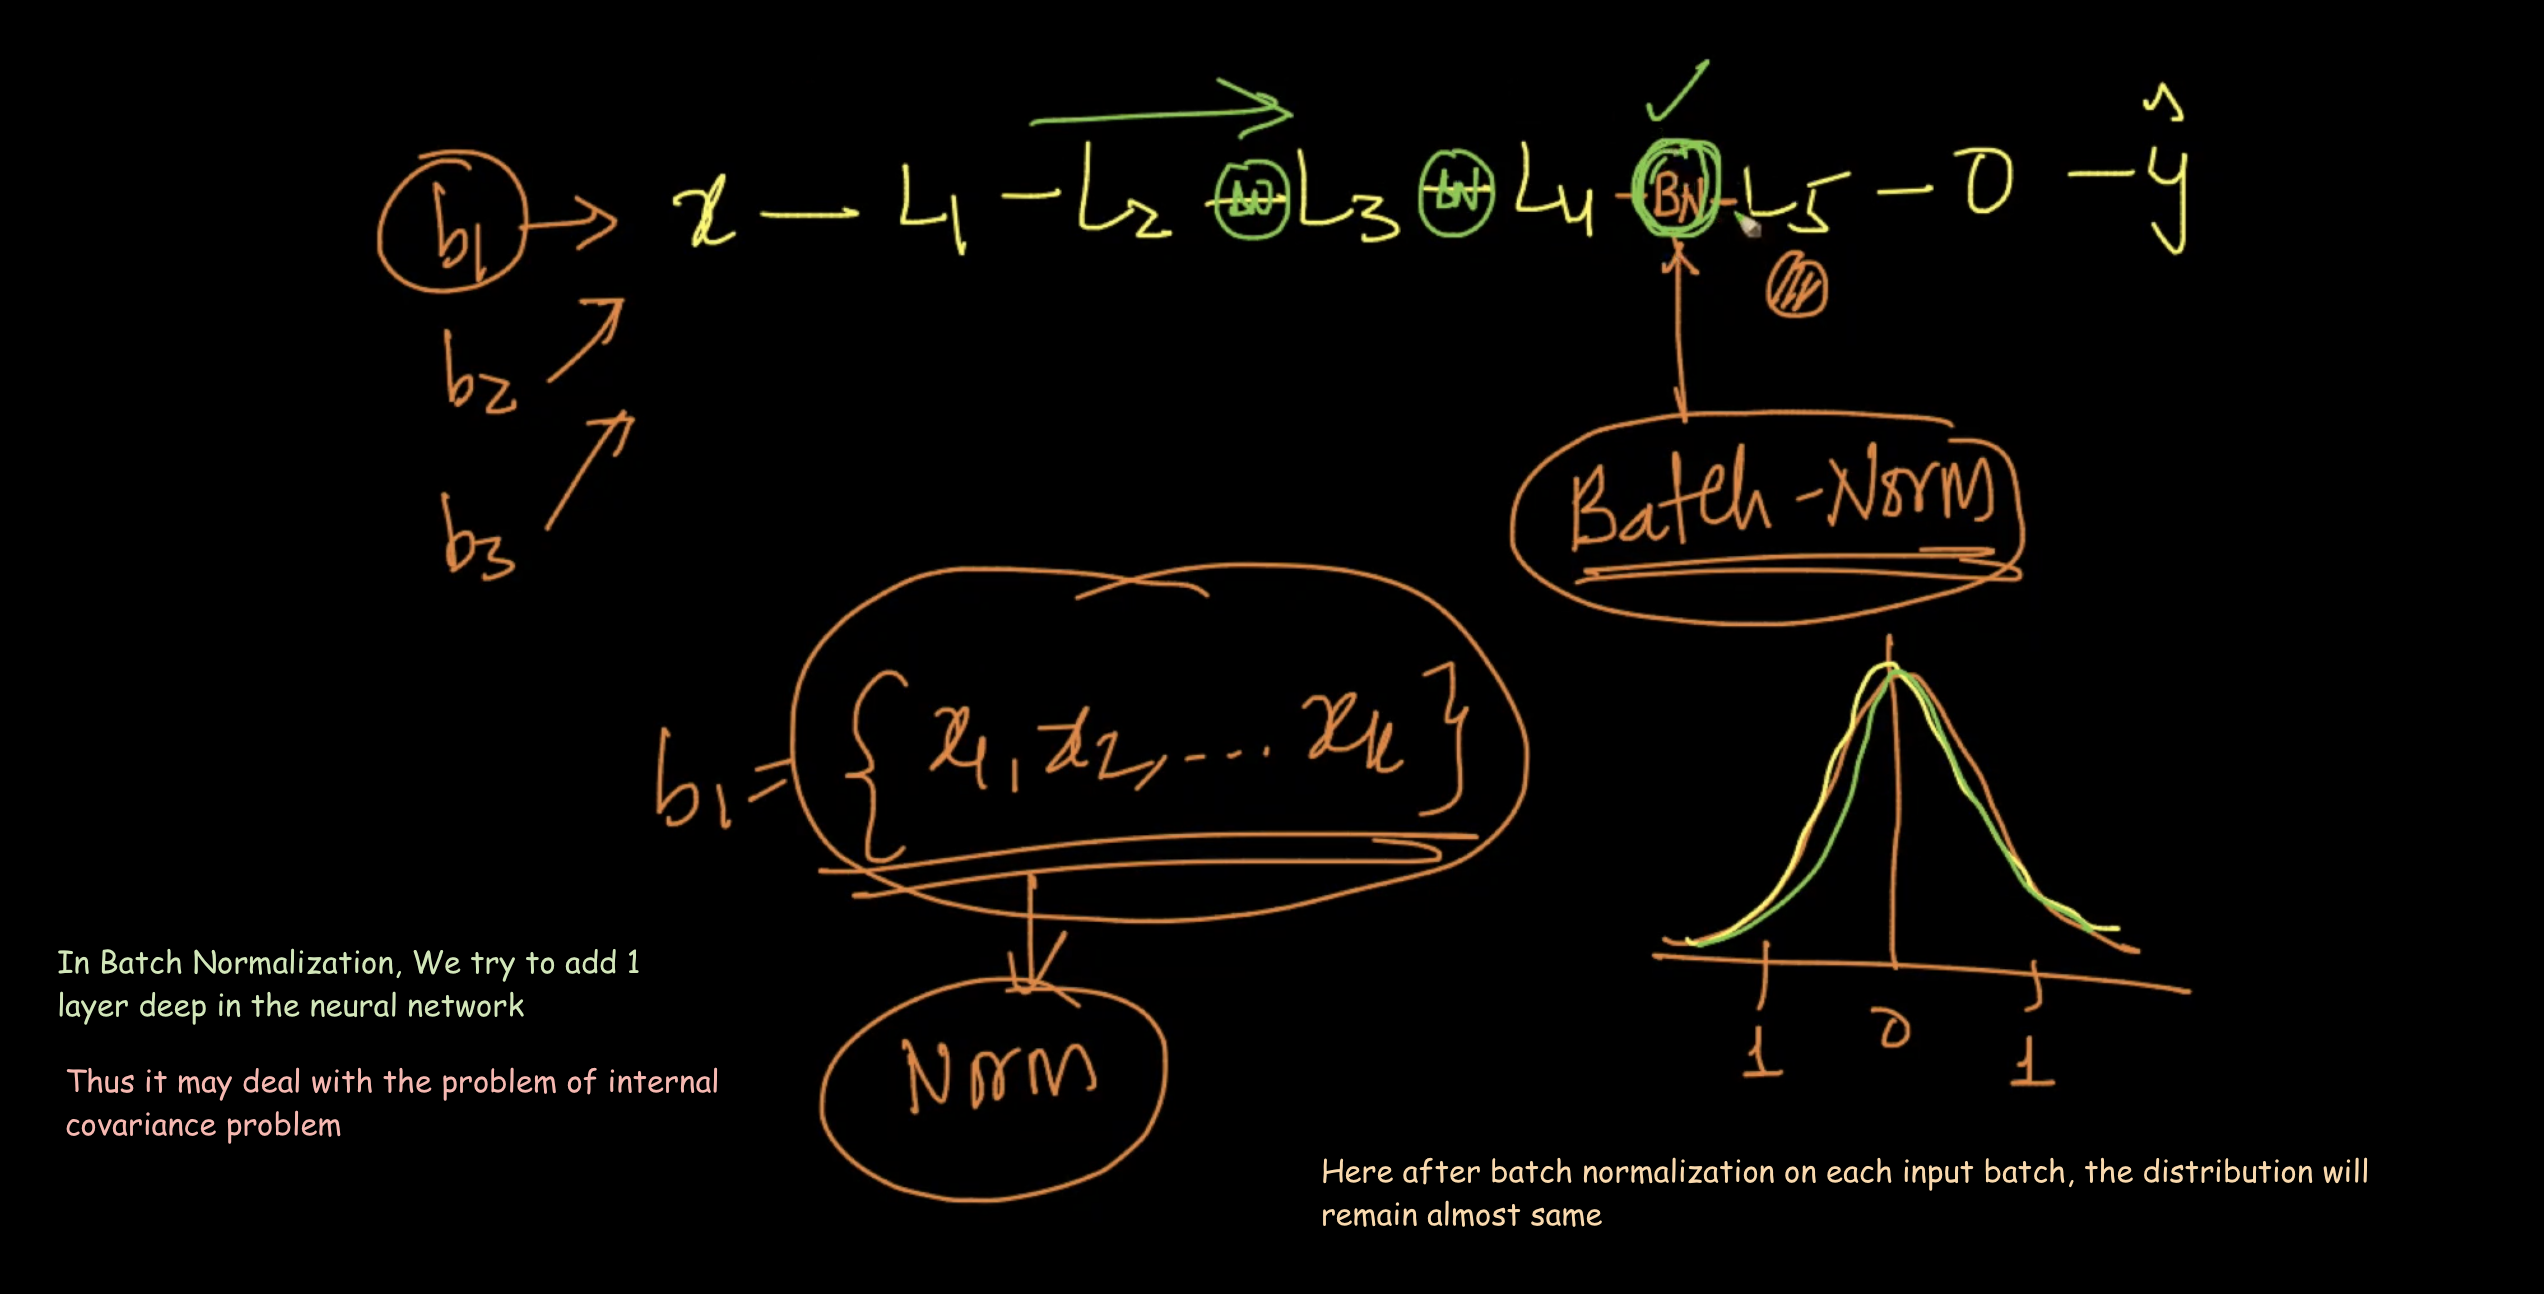 b1 → x — L1 — L2 — BN — L3 — BN — L4 — BN — L5 — O — ŷ
b2
b3
Batch-Norm
b1 = { x1, x2, --- xk }
Norm
1 0 1
In Batch Normalization, We try to add 1
layer deep in the neural network
Thus it may deal with the problem of internal
covariance problem
Here after batch normalization on each input batch, the distribution will
remain almost same